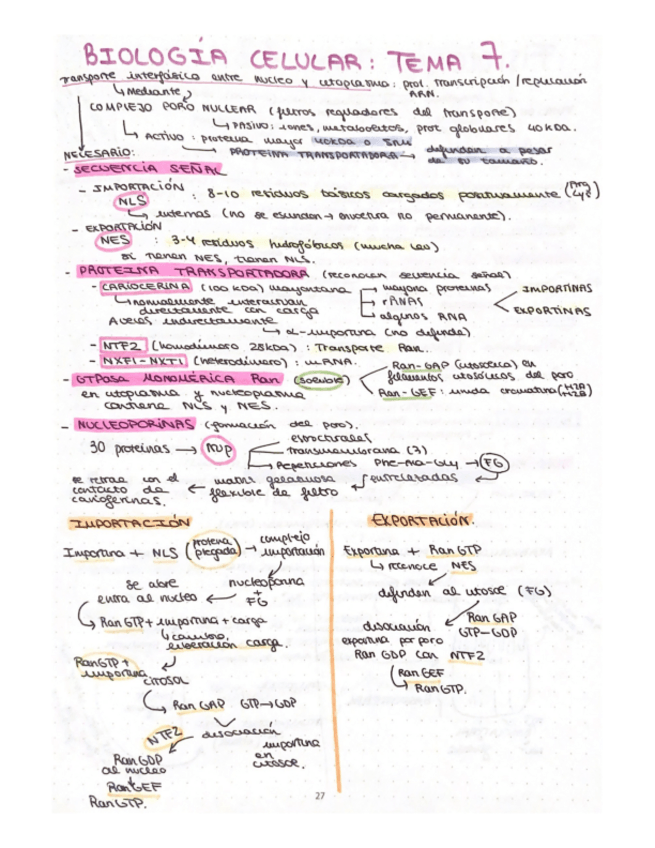 BIOLOGÍA CELULAR: TEMA 7.
Transporte interfásico entre nucleo y citoplasma: prot. transcripción / replicación ARN.
↳ Mediante
COMPLEJO PORO NUCLEAR (filtros reguladores del transporte)
↳ PASIVO: iones, metabolitos, prot globulares 40KDa.
↳ ACTIVO: proteína mayor 40KDa o 5nm
↳ PROTEÍNA TRANSPORTADORA → difunden a pesar de su tamaño.
NECESARIO:
- SECUENCIA SEÑAL
- IMPORTACIÓN
NLS : 8-10 residuos básicos cargados positivamente (Arg Lys)
↳ internas (no se escinden → envoltura no permanente).
- EXPORTACIÓN
NES : 3-4 residuos hidrofóbicos (mucha Leu)
si tienen NES, tienen NLS.
- PROTEINA TRANSPORTADORA (reconocen secuencia señal)
- CARIOFERINA (100 KDa) mayoritaria → mayoría proteínas
→ rRNAS
→ algunos RNA
< IMPORTINAS
EXPORTINAS
↳ normalmente interactúan directamente con carga
A veces indirectamente
↳ α-importina (no difunde)
- NTF2 (homodímero 28KDa) : Transporte Ran.
- NXF1-NXT1 (heterodímero) : mRNA.
- GTPasa MONOMÉRICA Ran (soluble)
Ran-GAP (citosólica) en filamentos citosólicos del poro
Ran-GEF: unida cromatina (H2A H2B)
en citoplasma y nucleoplasma
contiene NLS y NES.
- NUCLEOPORINAS (formación del poro).
30 proteínas → NUP
estructurales
transmembrana (3)
Repeticiones Phe-Gly → FG
entrelazadas
← matriz gelatinosa flexible de filtro
se retrae con el contacto de carioferinas.
IMPORTACIÓN
Importina + NLS (proteína plegada) → complejo importación
nucleoporina + FG
← se abre entra al nucleo
↳ RanGTP + importina + carga
↳ cambio, liberación carga.
RanGTP + importina
CITOSOL
↳ Ran GAP GTP→GDP
disociación
importina en citosol.
NTF2
RanGDP al nucleo
Ran GEF
RanGTP.
EXPORTACIÓN.
Exportina + RanGTP
↳ reconoce NES
difunden al citosol (FG)
Ran GAP
GTP-GDP
disociación
exportina por poro
Ran GDP con NTF2
(Ran GEF
↳ RanGTP.
27